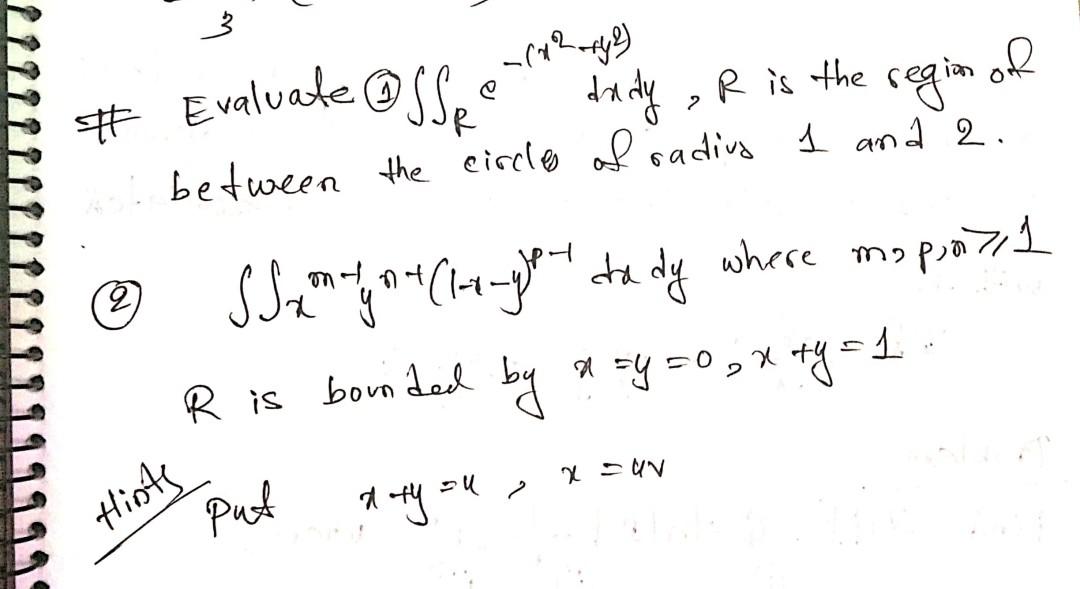 3
# Evaluate ① ∬_R e^{-(x²+y²)} dxdy, R is the region of
between the circles of radius 1 and 2.
② ∬ x^{m-1} y^{n-1} (1-x-y)^{p-1} dx dy where m, p, n ⩾ 1
R is bounded by x = y = 0, x + y = 1
Hints Put x + y = u, x = uv